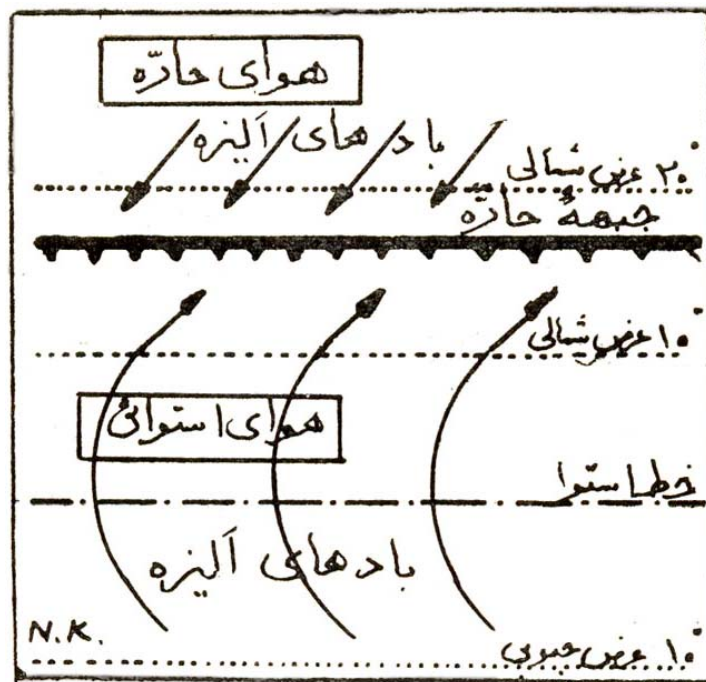 هوای حارّه
بادهای آلیزه
۲۰° عرض شمالی
جبههٔ حارّه
۱۰° عرض شمالی
هوای استوائی
خط استوا
بادهای آلیزه
N.K.
۱۰° عرض جنوبی